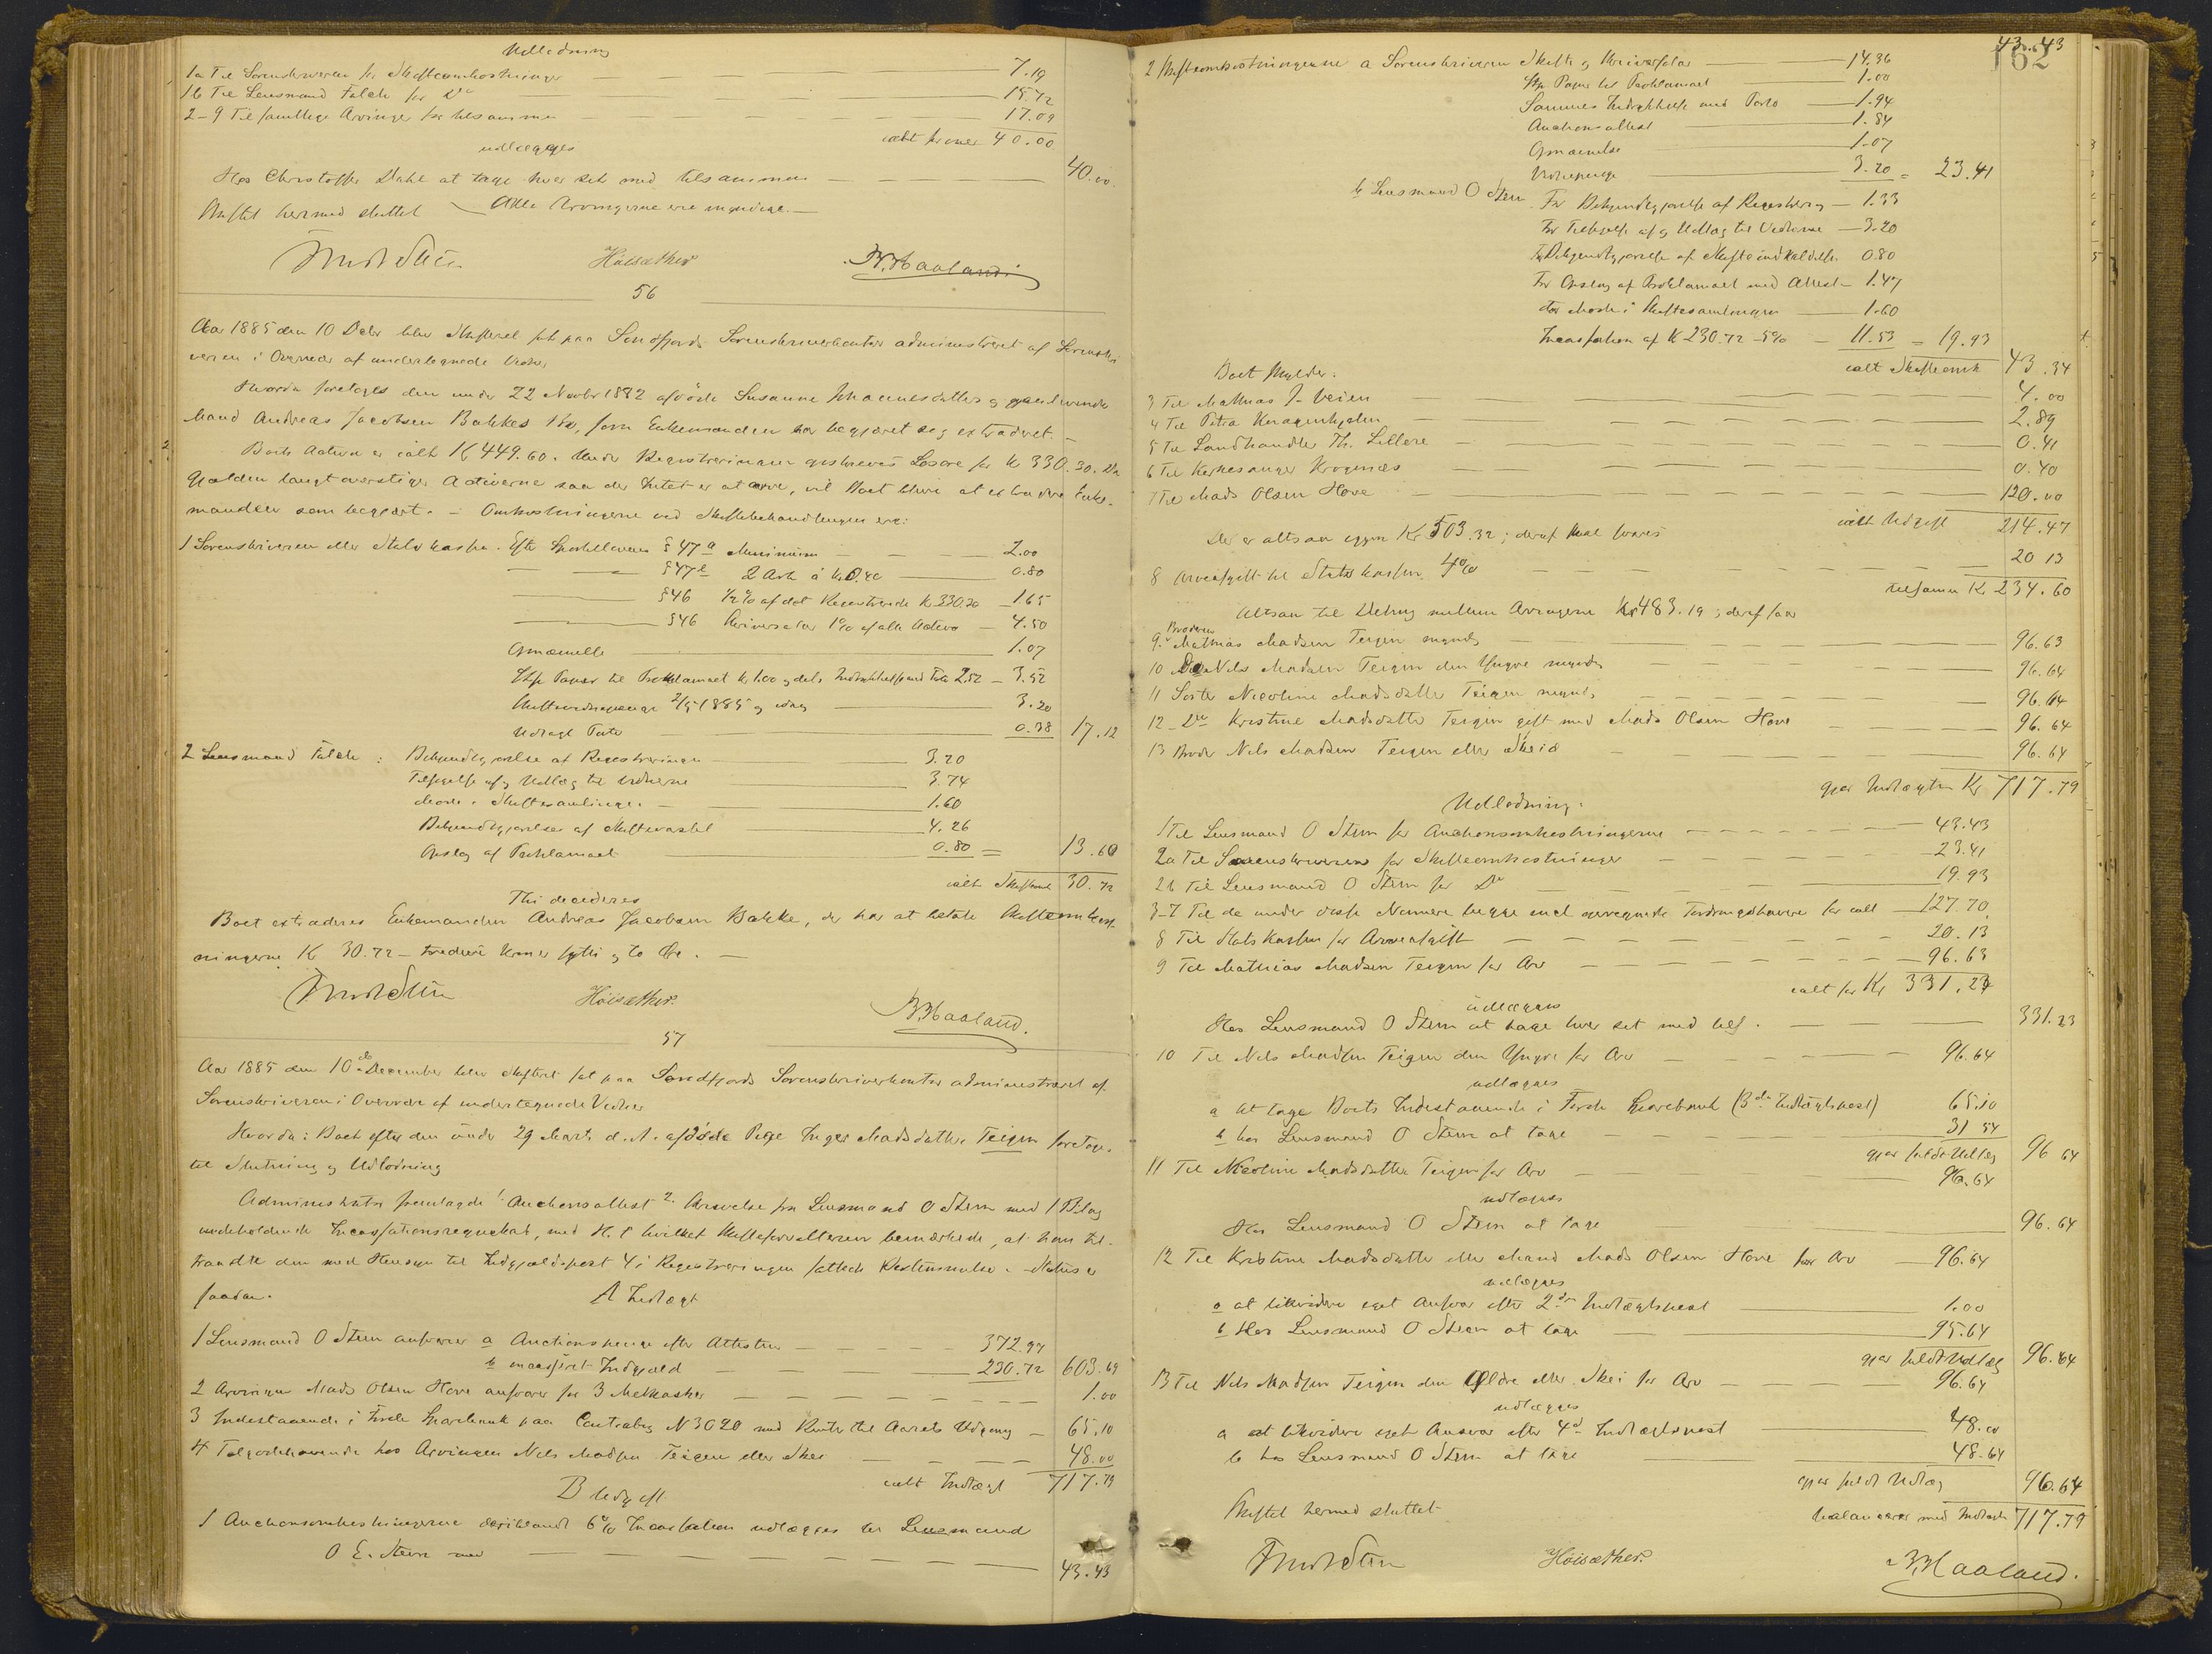 Udlodning
1a Til Sorenskriveren for Skifteomkostninger 7.19
1b Til Lensmand Falch for Do 15.72
2-9 Til samtlige Arvinger for tilsammen 17.09
ialt kroner 40.00
udlægges
Hos Christoffer Dahl at tage hver sit med tilsammen 40.00
Skiftet hermed sluttet Alle Arvingerne ere myndige.
Høisæther B. Haaland
56
Aar 1885 den 10 Decbr blev Skifteret sat paa Søndfjords Sorenskriverkontor administreret af Sorenskri
veren i Overvær af undertegnede Vidner
Hvorda foretoges den under 22 Novbr 1882 afdøde Susanne Johannesdatters og gjenlevende
Mand Andreas Jacobsen Bakkes Bo, som Enkemanden har begjæret sig extraderet.
Boets Activa er ialt K 449.60. Under Registreringen opskreves Løsøre for Kr 330.30. Da
Gjælden langt overstiger Activerne saa der Intet er at arve, vil Boet blive at extradere Enke-
manden som begjært. - Omkostningerne ved Skiftebehandlingen ere:
1 Sorenskriveren eller Statskassen. Efter Sportelloven § 47 a Minimum 2.00
§ 47 e 2 Ark á Kr 0.40 0.80
§ 46 1/2 % af det Registrerede Kr 330.30 1.65
§ 46 Skriversalær 1% af alle Activa 4.50
Gjenneivelse 1.07
Stp. Papir til Proklamaet Kr 1.00 og dets Indrykkelse med Porto 2.52 3.52
Skiftevidnepenge 2/5 1885 og idag 3.20
Udlagt Porto 0.38 17.12
2 Lensmand Falch: Bekjendtgjørelse af Registreringen 3.20
Tilsigelse af og Udlæg til Vidnerne 3.74
Møde i Skiftesamlinger 1.60
Bekjendtgjørelser af Skiftevarsel 4.26
Opslag af Proklamaet 0.80 = 13.60
ialt Skifteomk 30.72
Thi decideres
Boet extraderes Enkemanden Andreas Jacobsen Bakke, der har at betale Skifteomkost-
ningerne K 30.72 - tredive Kroner sytti og to Øre.
Høisæther. B. Haaland.
57
Aar 1885 den 10de December blev Skifteret sat paa Søndfjords Sorenskriverkontor administreret af
Sorenskriveren i Overvær af undertegnede Vidner
Hvorda: Boet efter den under 29 Marts d. A. afdøde Pige Inger Madsdatter Teigen foretoges
til Slutning og Udlodning
Administrator fremlagde 1. Auctionsattest 2. Skrivelse fra Lensmand O Steen med 1 Bilag
indeholdende Incassationsregnskab, med H. t hvilket Skifteforvalteren bemærkede, at han til-
traadte den med Hensyn til Indgjældspost 4 i Registreringen fattede Bestemmelse. - Status er
saadan.
A Indtægt
1 Lensmand O Steen ansvarer a Auctionspenge efter Attesten 372.97
b incasseret Indgjæld 230.72 603.69
2 Arvingen Mads Olsen Hove ansvarer for 3 Melkasker 1.00
3 Indestaaende i Førde Sparebank paa Contrabog N 3020 med Renter til Aarets Udgang 65.10
4 Tilgodehavende hos Arvingen Nils Madsen Teigen eller Skei 48.00
ialt Indtægt 717.79
B Udgift
1 Auctionsomkostningerne deriblandt 6% Incassation udlægges til Lensmand
O E. Steen med 43.43
162
43.43
2 Skifteomkostningerne a Sorenskriveren Skifte og Skriversalær 14.36
Stp. Papir til Proklamaet 1.00
Sammes Indrykkelse med Porto 1.94
Auctionsattest 1.84
1.07
Vidnepenge 3.20 = 23.41
b Lensmand O Steen For Bekjendtgjørelse af Registrering 1.33
For Tilsigelse af og Udlæg til Vidnerne 3.20
For Bekjendtgjørelse af Skifteindkaldelse 0.80
For Opslag af Proklamaet med Attest 1.47
For Møde i Skiftesamlingen 1.60
Incassation af K 230.72 5% 11.53 = 19.93
ialt Skifteomk 43.34
Boet skylder:
3 Til Mathias J. Veien 4.00
4 Til Petra 2.89
5 Til Landhandler Th. Lillere 0.41
6 Til Kirkesanger Krognæs 0.40
7 Til Mads Olsen Hove 120.00
ialt Udgift 214.47
Der er altsaa igjen Kr 503.32; deraf skal svares
8 Arveafgift til Statskassen 4% 20 13
tilsammen Kr 234.60
Altsaa til Deling mellem Arvingerne Kr 483.19; deraf faar
9. Broderen Mathias Madsen Teigen myndig 96.63
10 Do Nils Madsen Teigen den Yngre myndig 96.64
11 Søster Nicoline Madsdatter Teigen myndig 96.64
12 Do Kristine Madsdatter Teigen gift med Mads Olsen Hove 96.64
13 Broder Nils Madsen Teigen eller Skeid 96.64
gjør Indtægten Kr 717.79
Udlodning.
1 Til Lensmand O Steen for Auctionsomkostningerne 43.43
2a Til Sorenskriveren for Skifteomkostninger 23.41
2b Til Lensmand O Steen for Do 19.93
3-7 Til de under disse Numere begge incl opregnede Fordringshavere for ialt 127.70
8 Til Statskassen for Arveafgift 20.13
9 Til Mathias Madsen Teigen for Arv 96.63
ialt for Kr 331.23
udlægges
Hos Lensmand O Steen at tage hver sit med tils. 331.23
10 Til Nils Madsen Teigen den Yngre for Arv 96.64
udlægges
a at tage Boets Indestaaende i Førde Sparebank (3die Indtægtspost) 65.10
b hos Lensmand O Steen at tage 31 54
gjør fuldt Udlæg 96 64
11 Til Nicoline Madsdatter Teigen for Arv 96.64
udlægges
Hos Lensmand O Steen at tage 96.64
12 Til Kristine Madsdatter eller Mand Mads Olsen Hove for Arv 96.64
udlægges
a at likvidere eget Ansvar efter 2den Indtægtspost 1.00
b Hos Lensmand O Steen at tage 95.64
gjør fuldt Udlæg 96.64
13 Til Nils Madsen Teigen den Ældre eller Skei for Arv 96.64
udlægges
a at likvidere eget Ansvar efter 4d Indtægtspost 48.00
b hos Lensmand O Steen at tage 48.64
gjør fuldt Udlæg 96.64
Skiftet hermed sluttet balancerer med Indtægt 717.79
Høisæther. B. Haaland.